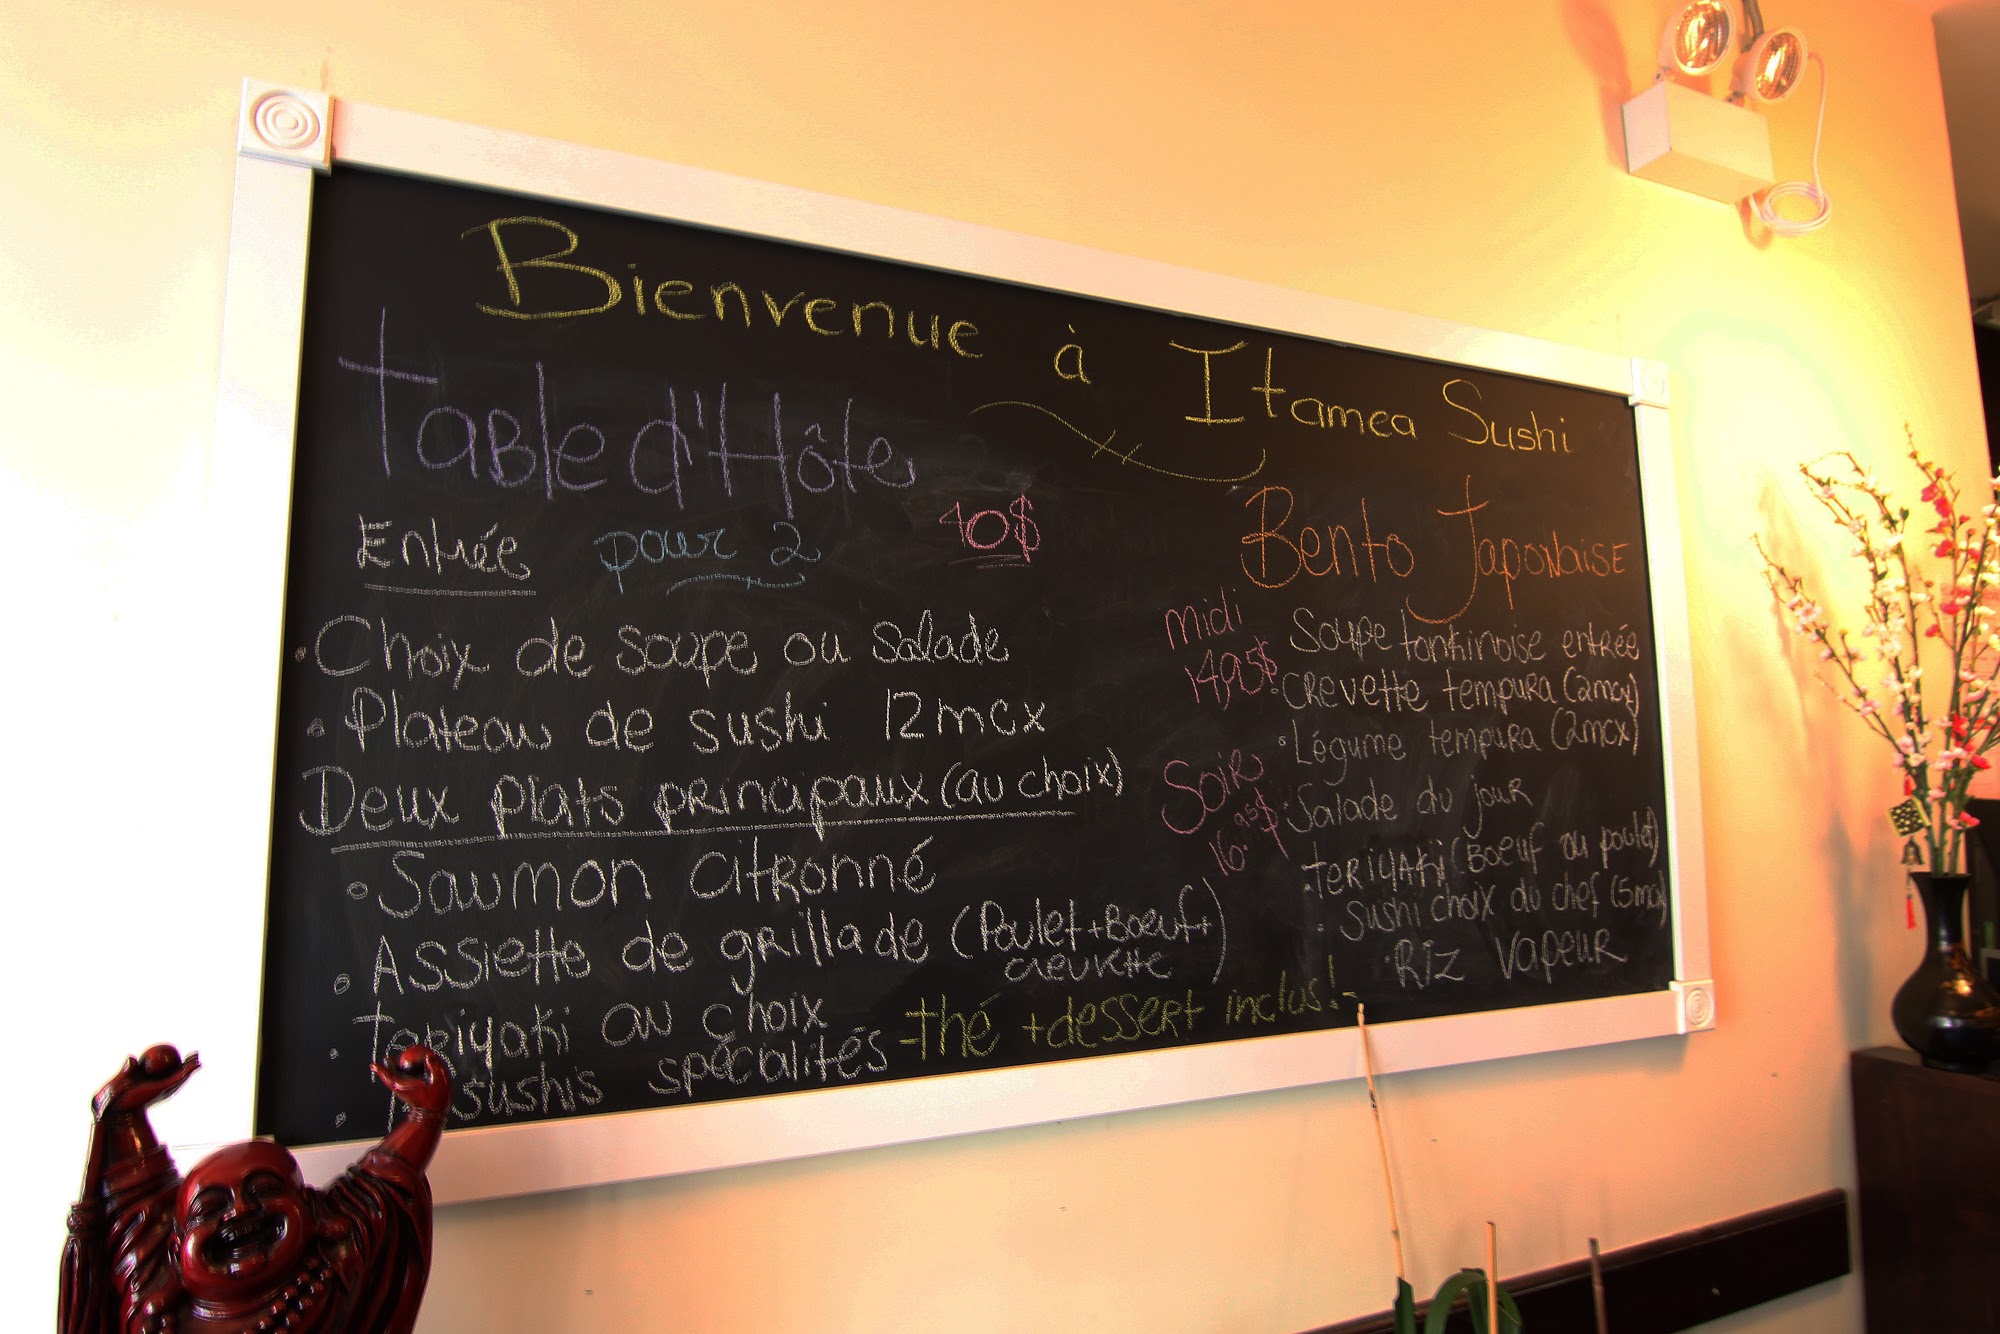 Bienvenue à Itamea Sushi
Table d'Hôte
Entrée pour 2 40$
• Choix de soupe ou salade
• Plateau de sushi 12mcx
Deux plats principaux (au choix)
• Saumon citronné
• Assiette de grillade (Poulet + Boeuf +
crevette)
• teriyaki au choix
• sushis spécialités
-thé + dessert inclus!-
Bento Japonaise
midi
14,95$
Soir
16.95$
Soupe tonkinoise entrée
• Crevette tempura (2mcx)
• Légume tempura (2mcx)
• Salade du jour
• teriyaki (Boeuf ou poulet)
• sushi choix du chef (5mcx)
• Riz vapeur